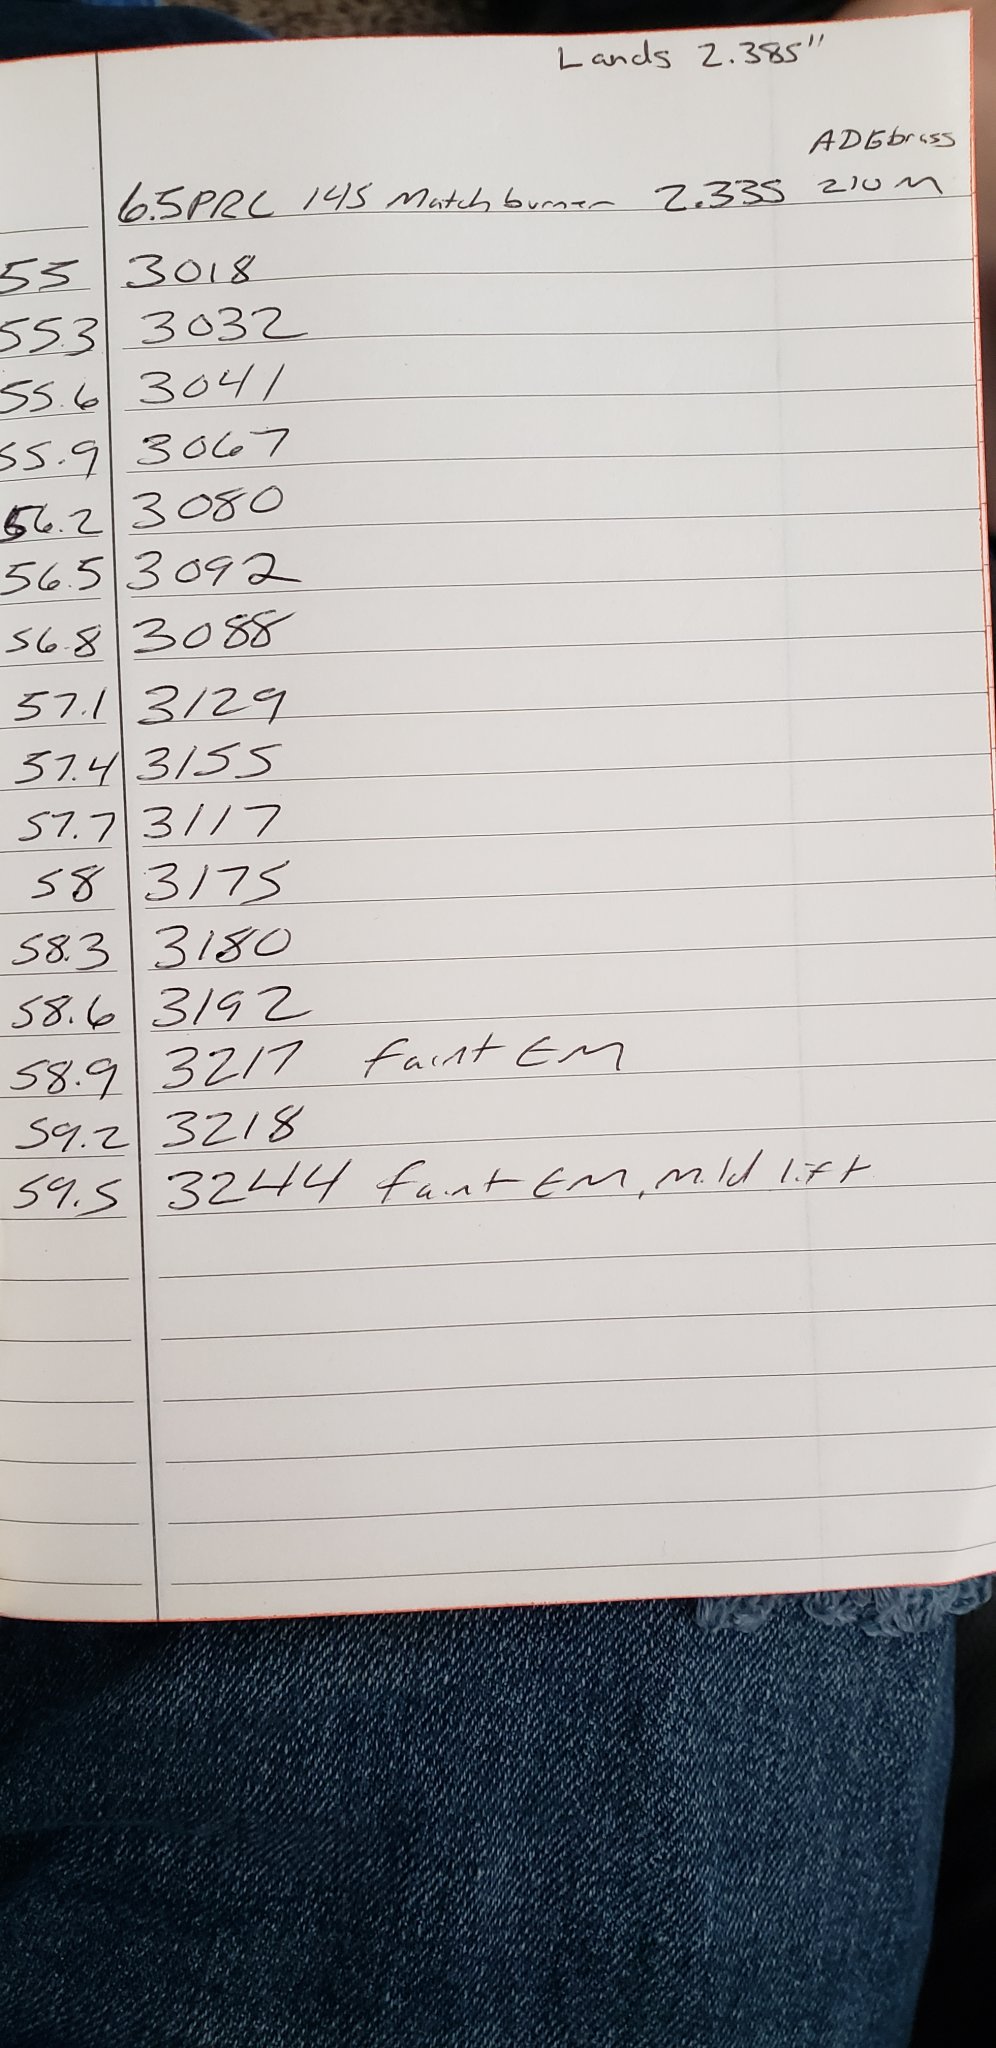 Lands 2.385"
ADG brass
6.5PRC 145 Matchburner 2.335 210M
55 3018
55.3 3032
55.6 3041
55.9 3067
56.2 3080
56.5 3092
56.8 3088
57.1 3129
57.4 3155
57.7 3117
58 3175
58.3 3180
58.6 3192
58.9 3217 faint EM
59.2 3218
59.5 3244 faint EM, mild lift